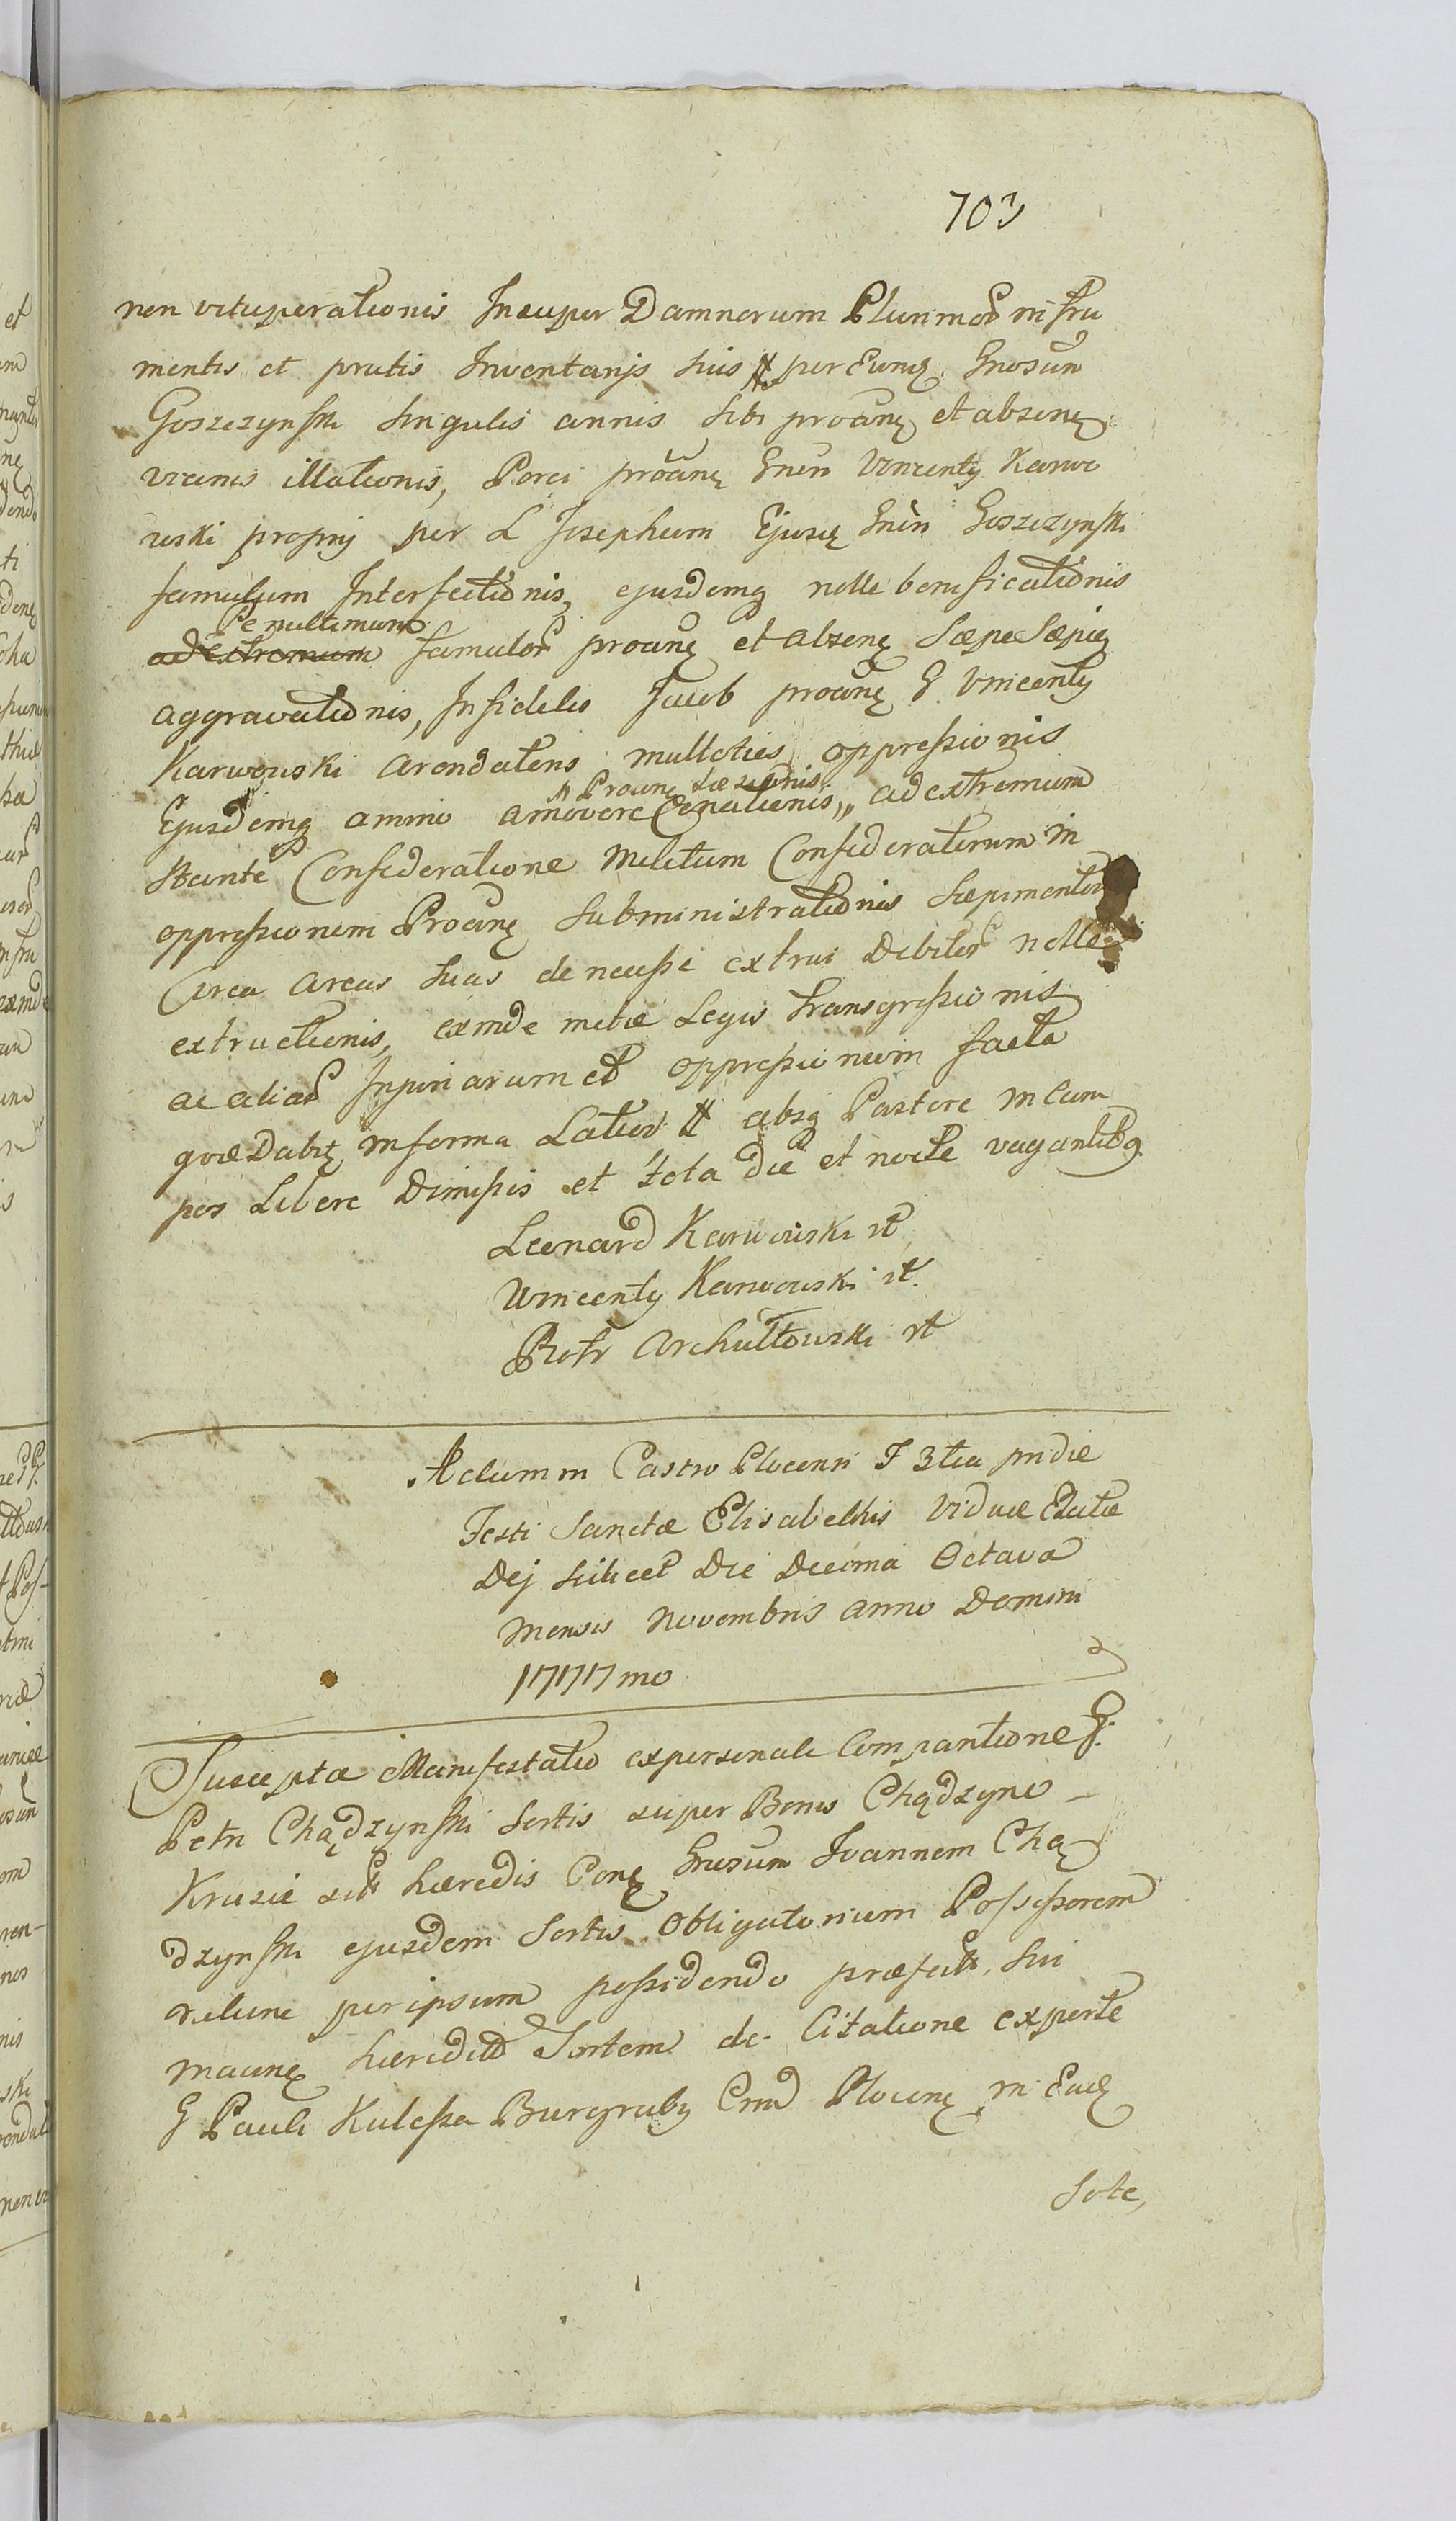 703
non vituperationis Insuper Damnorum Plurimor in fru
mentis et pratis Inventarijs suis # per Eumq Gnosum
Goszczynski singulis annis sibi proanę et absenę
vicinis illationis, Porci proanę Gnin Vincenty Karwo
wski proprij per L Josephum Ejusę Gnin Goszczynski
famulum Interfectionis, ejusdemq nolle bonificationis
Penultimum
ad extremum famulor proanę et absenę sæpe sæpię
aggravationis, Infidelis Jacob proanę G Vincenty
Karwowski arendatens multoties oppressionis
" Proanę Læsionis
Ejusdemq animo amovere Conationis „ ad extremum
Stante Confæderatione Militum Confæderatorum in
oppressionem Proanę subministrationis sæpimentor
Circa areas suas de necesse extrui debitor nolle
extructionis, exinde metæ Legis transgressionis
ac aliar Injuriarum et oppressionum facta
qvæ Dabit in forma Latior # absq Pastore in Cam
pos Libere Dimissis et tota die et nocte vagantibq
Leonard Karwowski #
Wincenty Karwowski #
Piotr Archutowski #
Actum in Castro Plocensi F 3tia pridie
Festi Sanctæ Elisabethis Viduæ Elatæ
Dej scilicet Die Decima Octava
Mensis Novembris Anno Domini
1777mo
Suscepta Manifestatio ex personali Comparitione G:
Petri Chądzynski Sortis super Bonis Chądzyno
Krusie sit hæredis Conę Gnosum Joannem Chą
dzynski ejusdem Sortis Obligatorium Possessorem
ratione per ipsum possidendo præfect, sui
macinę hæredit Sortem de Citatione ex parte
G Pauli Kulesza Burgraby Cmd Plocenę in Eadę
Sote,